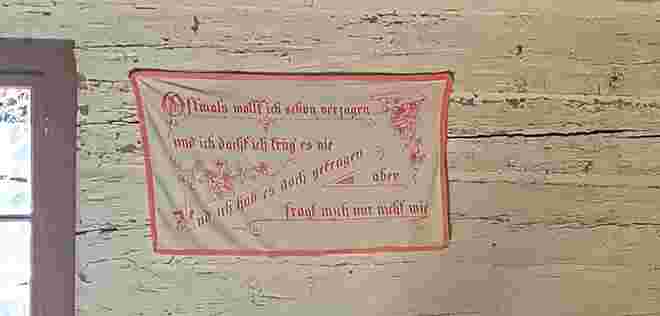 Oftmals wollt ich schon verzagen
und ich dacht ich trüg es nie
Und ich hab es doch getragen
aber
fragt mich nur nicht wie